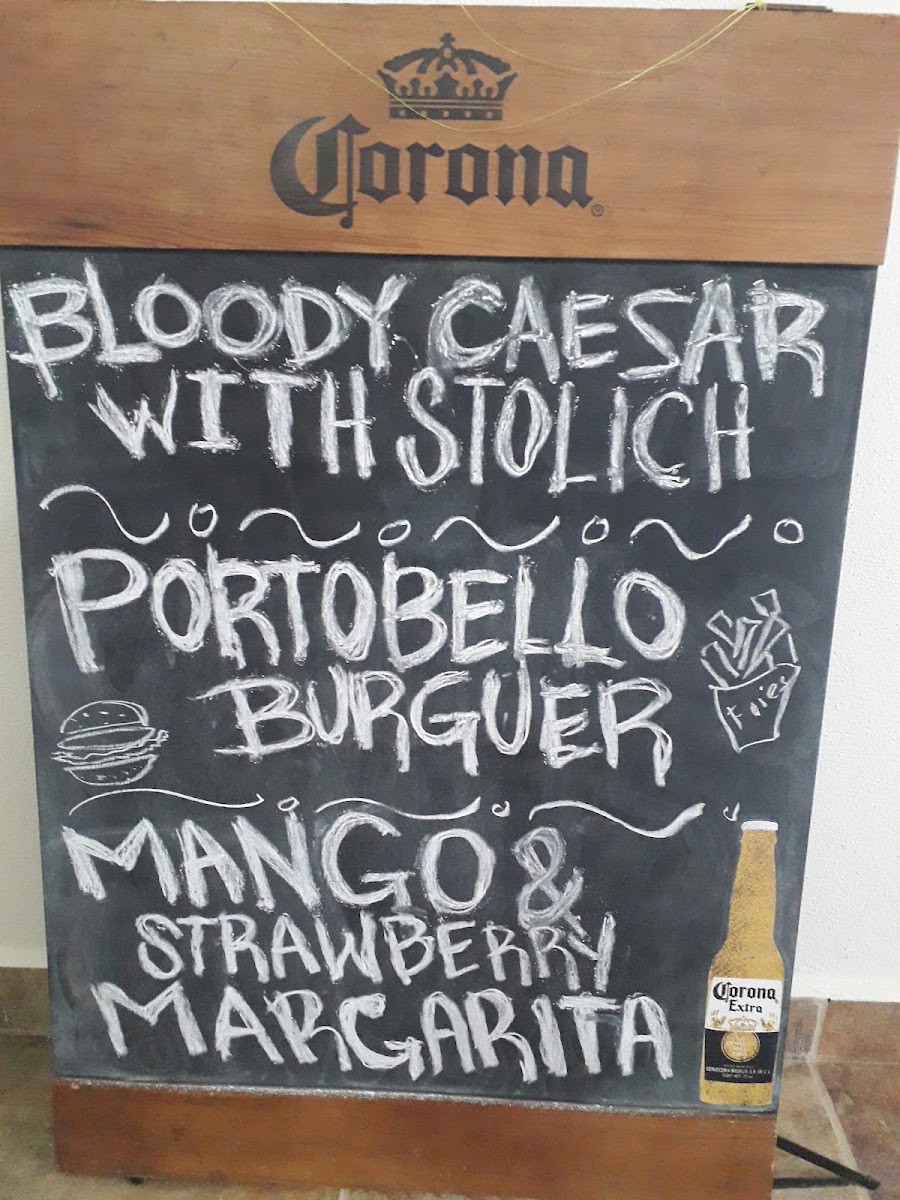 Corona®
BLOODY CAESAR
WITH STOLICH
PORTOBELLO
Fries
BURGUER
MANGO &
STRAWBERRY
MARGARITA
Corona
Extra